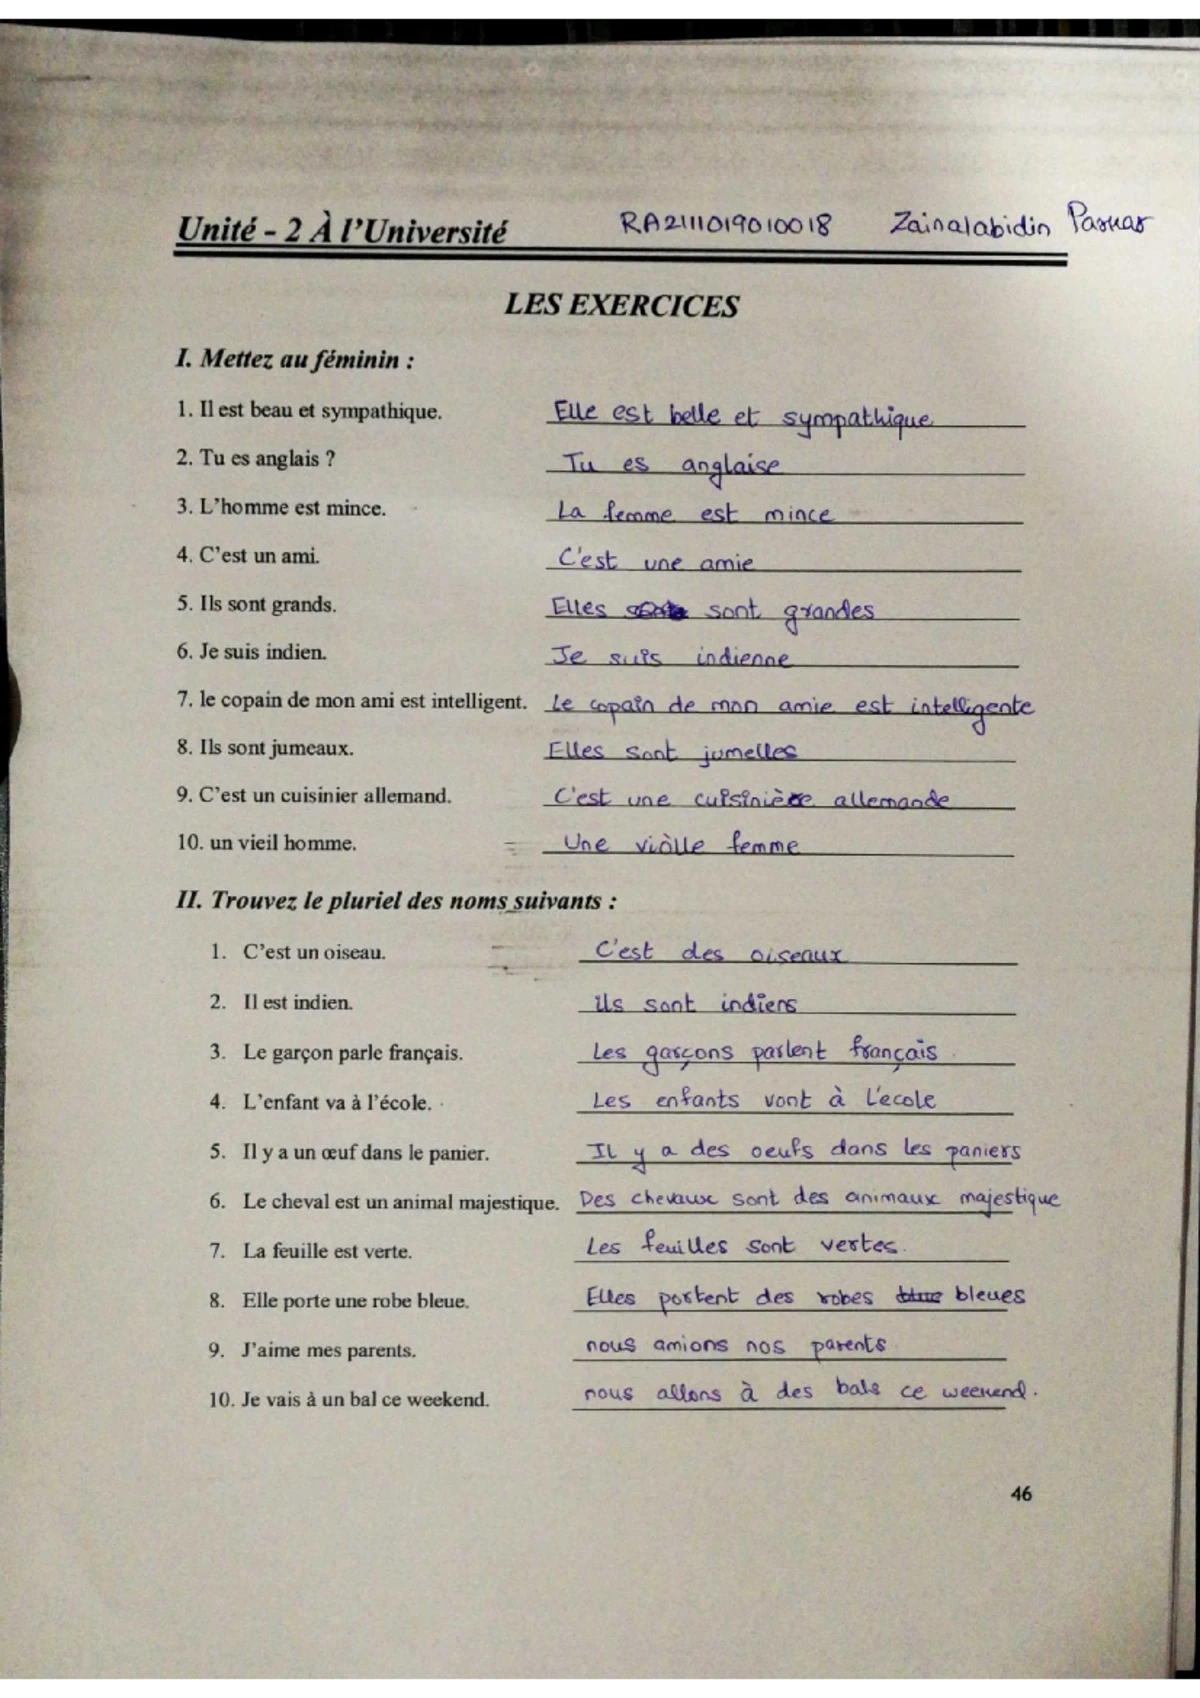 Unité - 2 À l'Université RA2111019010018 Zainalabidin
LES EXERCICES
I. Mettez au féminin :
1. Il est beau et sympathique. Elle est belle et sympathique
2. Tu es anglais ? Tu es anglaise
3. L'homme est mince. La femme est mince
4. C'est un ami. C'est une amie
5. Ils sont grands. Elles sont grandes
6. Je suis indien. Je suis indienne
7. le copain de mon ami est intelligent. Le copain de mon amie est intelligente
8. Ils sont jumeaux. Elles sont jumelles
9. C'est un cuisinier allemand. C'est une cuisinière allemande
10. un vieil homme. Une vièlle femme
II. Trouvez le pluriel des noms suivants :
1. C'est un oiseau. C'est des oiseaux
2. Il est indien. ils sont indiens
3. Le garçon parle français. Les garçons parlent français.
4. L'enfant va à l'école. Les enfants vont à l'ecole
5. Il y a un œuf dans le panier. Il y a des oeufs dans les paniers
6. Le cheval est un animal majestique. Des chevaux sont des animaux majestique
7. La feuille est verte. Les feuilles sont vertes.
8. Elle porte une robe bleue. Elles portent des robes bleues
9. J'aime mes parents. nous amions nos parents
10. Je vais à un bal ce weekend. nous allons à des bals ce weekend.
46